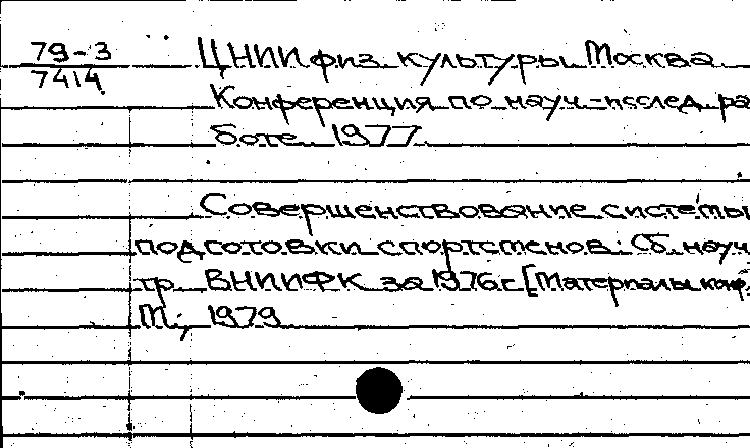 79-3
7414
ЦНИИ физ. культуры. Москва.
Конференция по науч.-исслед. ра
боте. 1977.
Совершенствование системы
подготовки спортсменов: Сб. науч.
тр. ВНИИФК за 1976г. [Материалы конф.
М., 1979